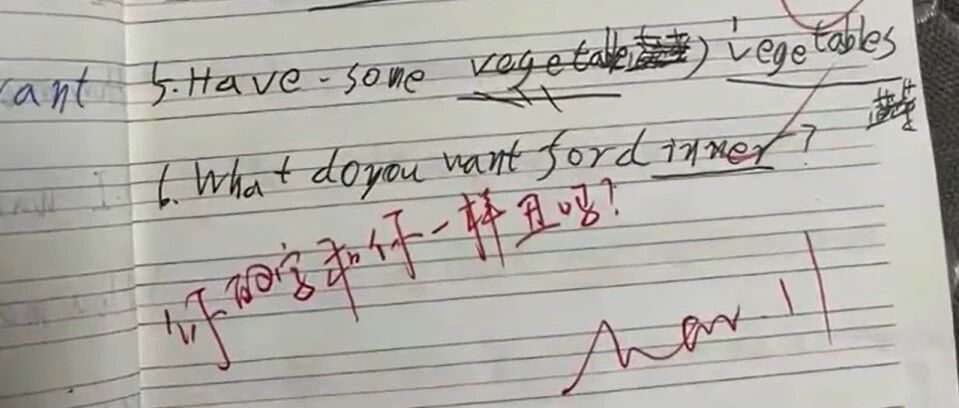 5. Have some vegetable ) vegetables
6. What do you want for dinner?
你的字和你一样丑吗?